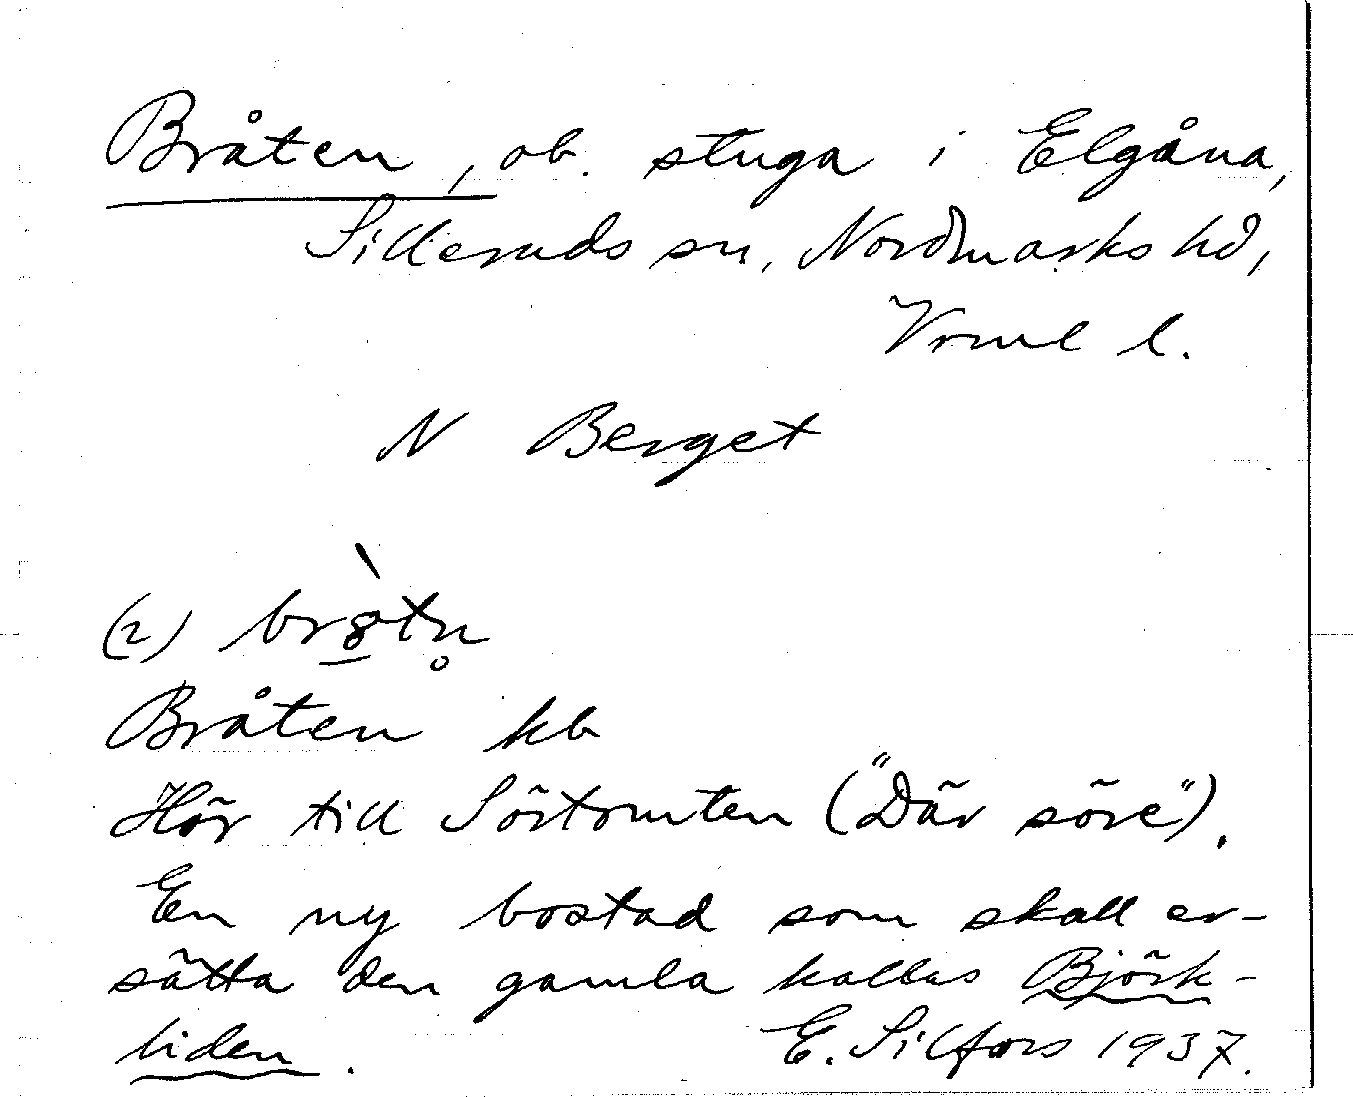 Bråten, ob. stuga i Elgåna,
Silleruds sn, Nordmarks hd,
Vrml l.
N Berget
(2) br8̲̀tn̥
Bråten kb
Hör till Sörtomten ("Där söre").
En ny bostad som skall er-
sätta den gamla kallas Björk-
liden.
E. Silfors 1937.